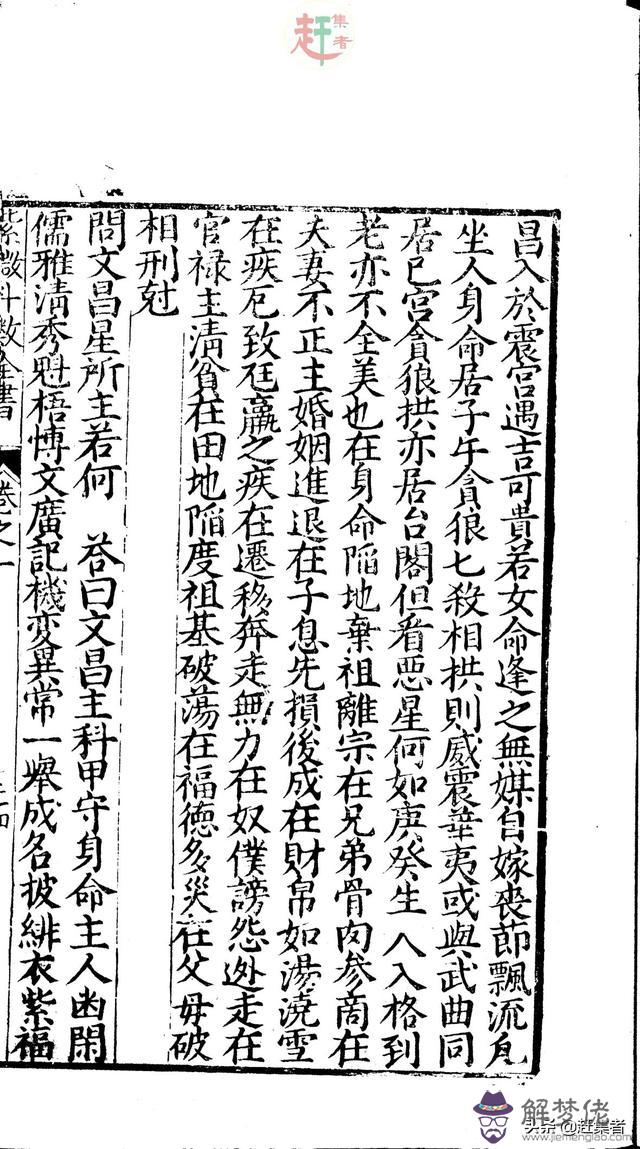 赶集者
昌入於震宮遇吉可貴若女命逢之無媒自嫁喪節飄流凢
坐人身命居子午貪狼七殺相拱則威震華夷或與武曲同
居巳宮貪狼拱亦居台閣但看惡星何如庚癸生人入格到
老亦不全美也在身命陷地棄祖離宗在兄弟骨肉參商在
夫妻不正主婚姻進退在子息先損後成在財帛如湯澆雪
在疾厄致尫羸之疾在遷移奔走無力在奴僕謗怨迯走在
官祿主清貧在田地陷度祖基破蕩在福德多災在父母破
相刑尅
問文昌星所主若何 荅曰文昌主科甲守身命主人幽閑
儒雅清秀魁梧愽文廣記機变異常一舉成名披緋衣紫福
紫微斗数全書 卷之一
解梦佬
www.jiemenglao.com
头杀@赶集者